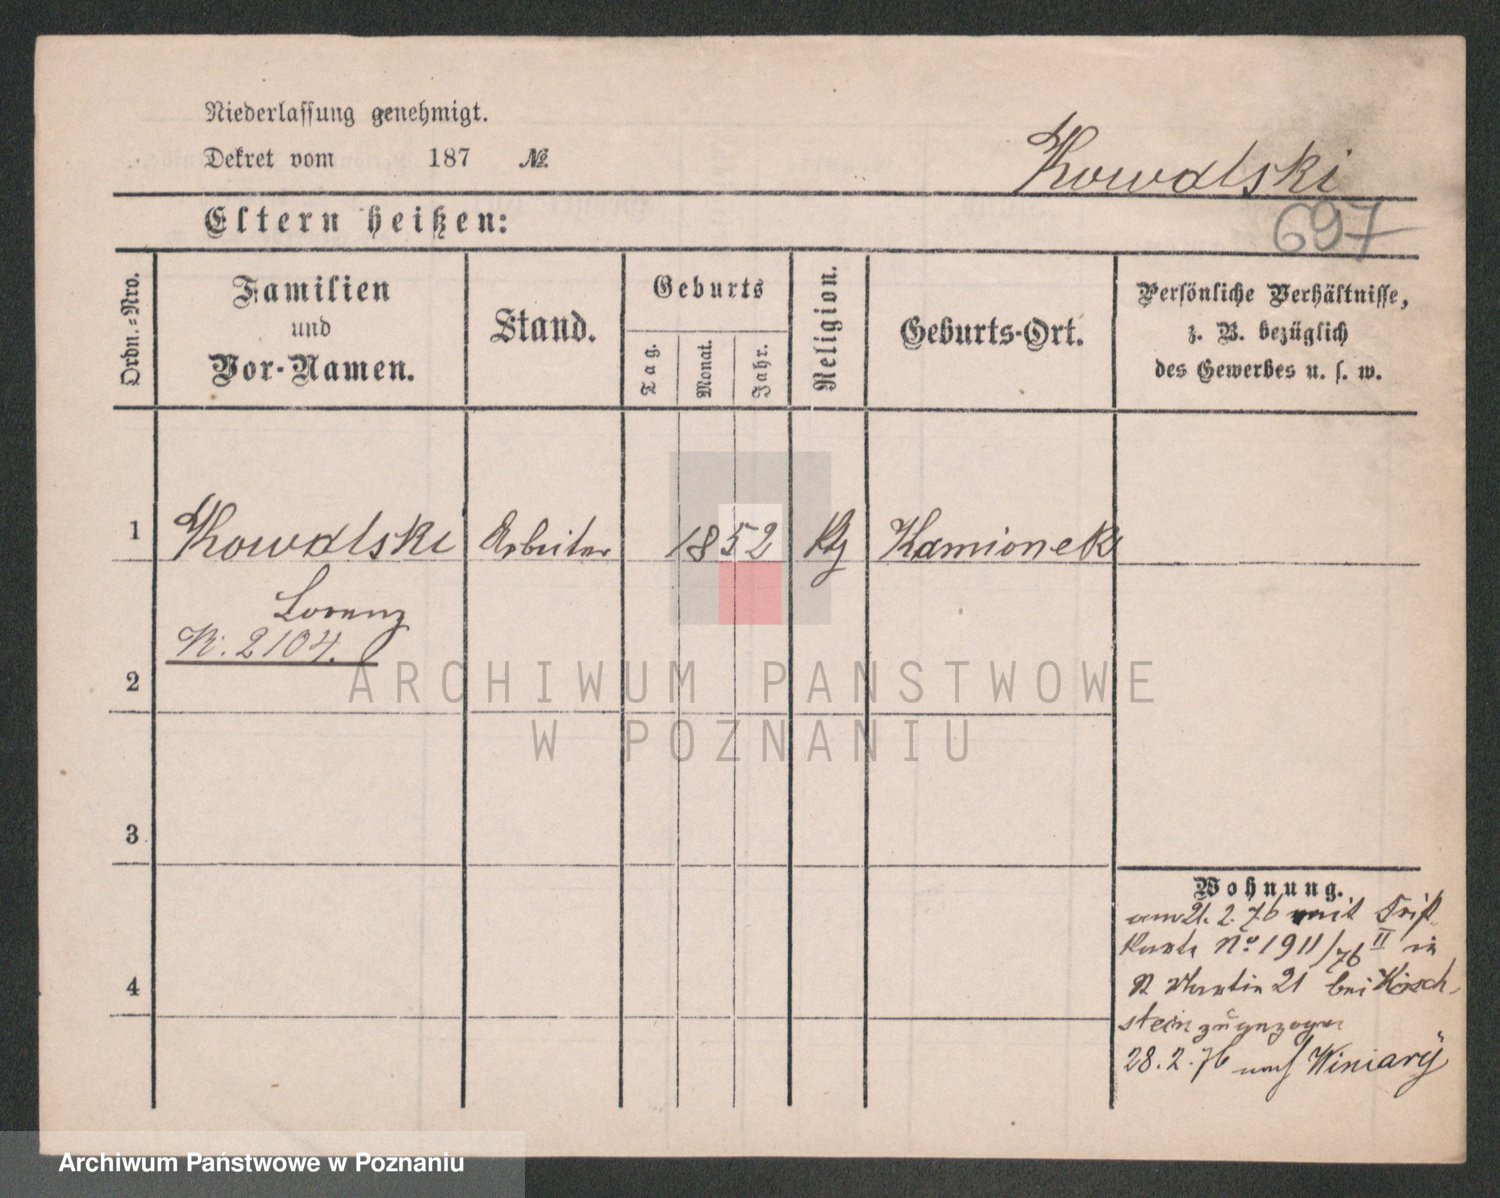 Niederlassung genehmigt.
Dekret vom 187 №
Kowalski
697
Eltern heißen:
Ordn.-Nro.
Familien
und
Vor-Namen.
Stand.
Geburts
Tag.
Monat.
Jahr.
Religion.
Geburts-Ort.
Persönliche Verhältnisse,
z. B. bezüglich
des Gewerbes u. s. w.
1 Kowalski Arbeiter 1852 Kamionek
Lorenz
N: 2104.
2
3
4
Wohnung.
am 21. 2. 76 mit
Karte No 1911/76 II in
St Martin 21 bei Hirsch-
stein zugezogen
28. 2. 76 nach Winiary
ARCHIWUM PAŃSTWOWE
W POZNANIU
Archiwum Państwowe w Poznaniu